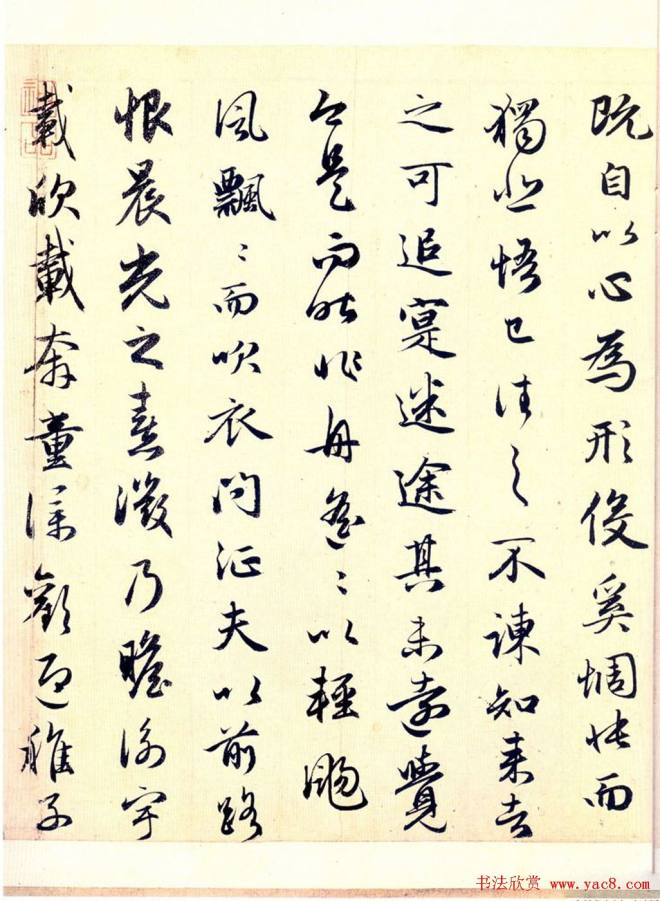 既自以心為形役奚惆悵而
獨悲悟已往之不諫知来者
之可追寔迷途其未遠覺
今是而昨非舟遙〻以輕颺
風飄〻而吹衣問征夫以前路
恨晨光之熹微乃瞻衡宇
載欣載奔童僕歡迎稚子
书法欣赏 www.yac8.com